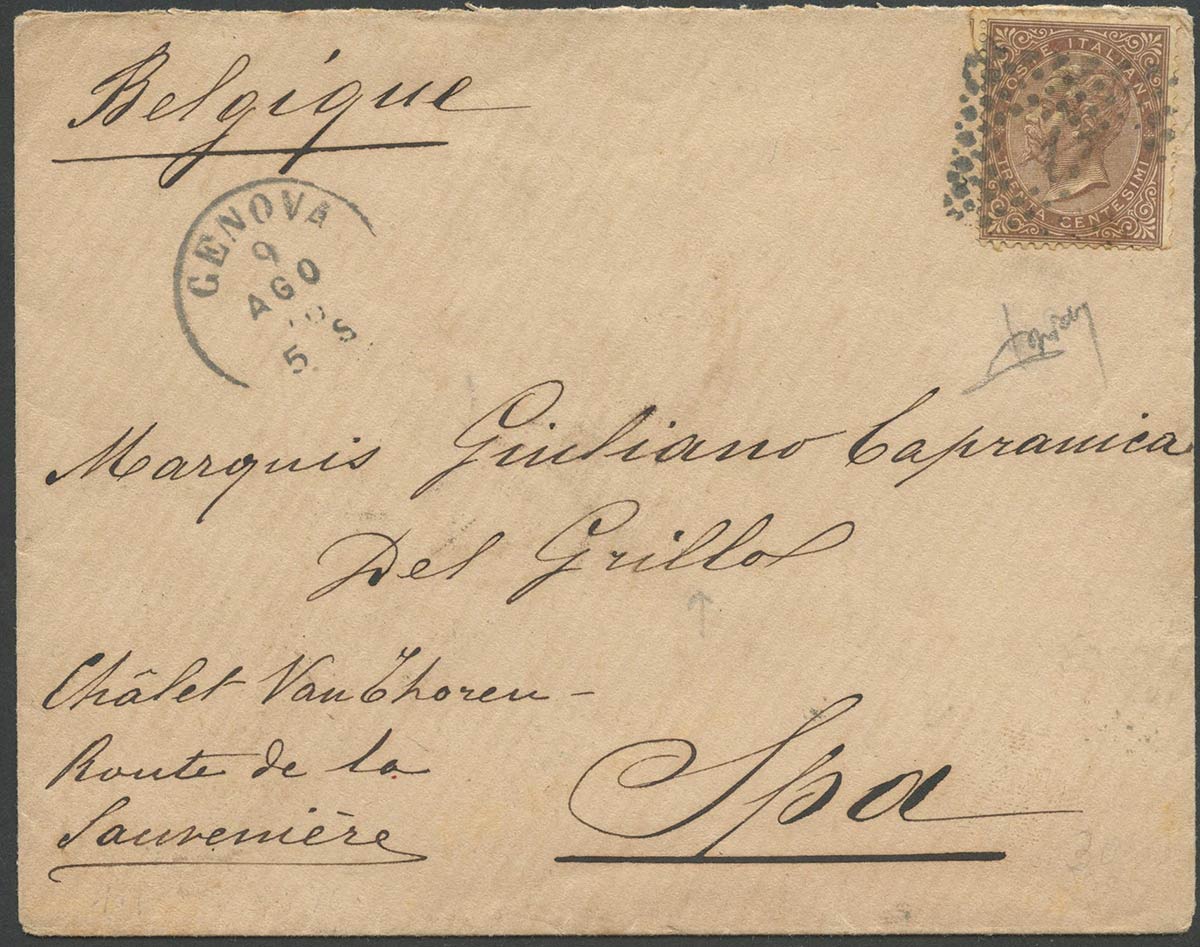 Belgique
POSTE ITALIANE
17
TRENTA CENTESIMI
GENOVA
9
AGO
5 S
Marquis Giuliano Capranica
Del Grillo
Châlet Van Thoren -
Route de la
Sauvenière
Spa